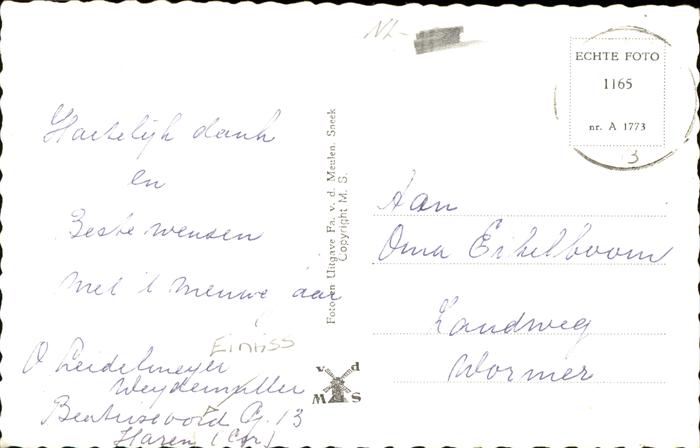 NL-
ECHTE FOTO
1165
nr. A 1773
3
Hartelijk dank
en
Beste wensen
met 't nieuwe jaar
O Leidelmeyer
Weydemuller
Einriss
G. 13
Haren (Gr)
Foto en Uitgave Fa. v. d. Meulen. Sneek
Copyright M. S.
v d
M S
Aan
Oma Eikelboom
Landweg
Wormer